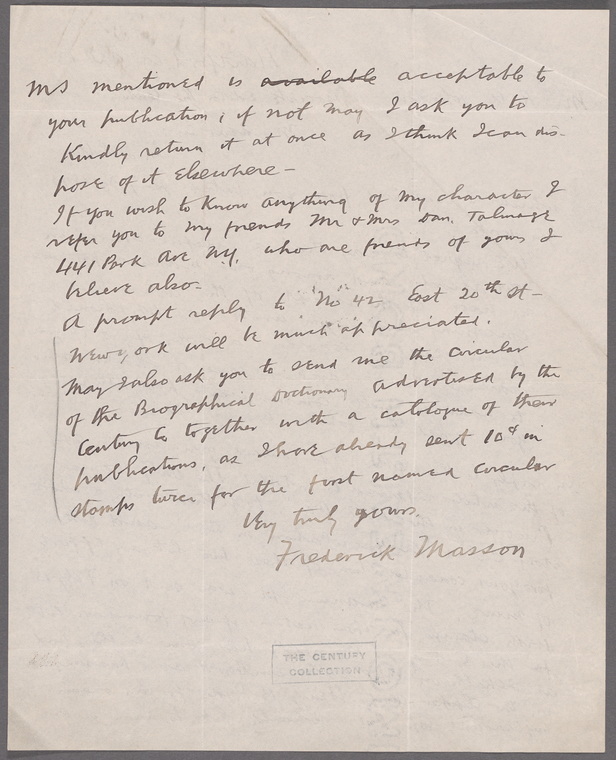 MS mentioned is available acceptable to
your publication, if not may I ask you to
Kindly return it at once as I think I can dis-
pose of it Elsewhere -
If you wish to Know anything of my character I
refer you to my friends Mr & Mrs Dan. Talmage
441 Park Ave N.Y. who are friends of yours I
believe also -
A prompt reply to "No" 42 East 20th St -
New York will be much appreciated.
May I also ask you to send me the circular
of the Biographical Dictionary advertised by the
Century Co together with a catalogue of their
publications, as I have already sent 10¢ in
stamps twice for the first named circular
Very truly yours.
Frederick Masson
THE CENTURY
COLLECTION